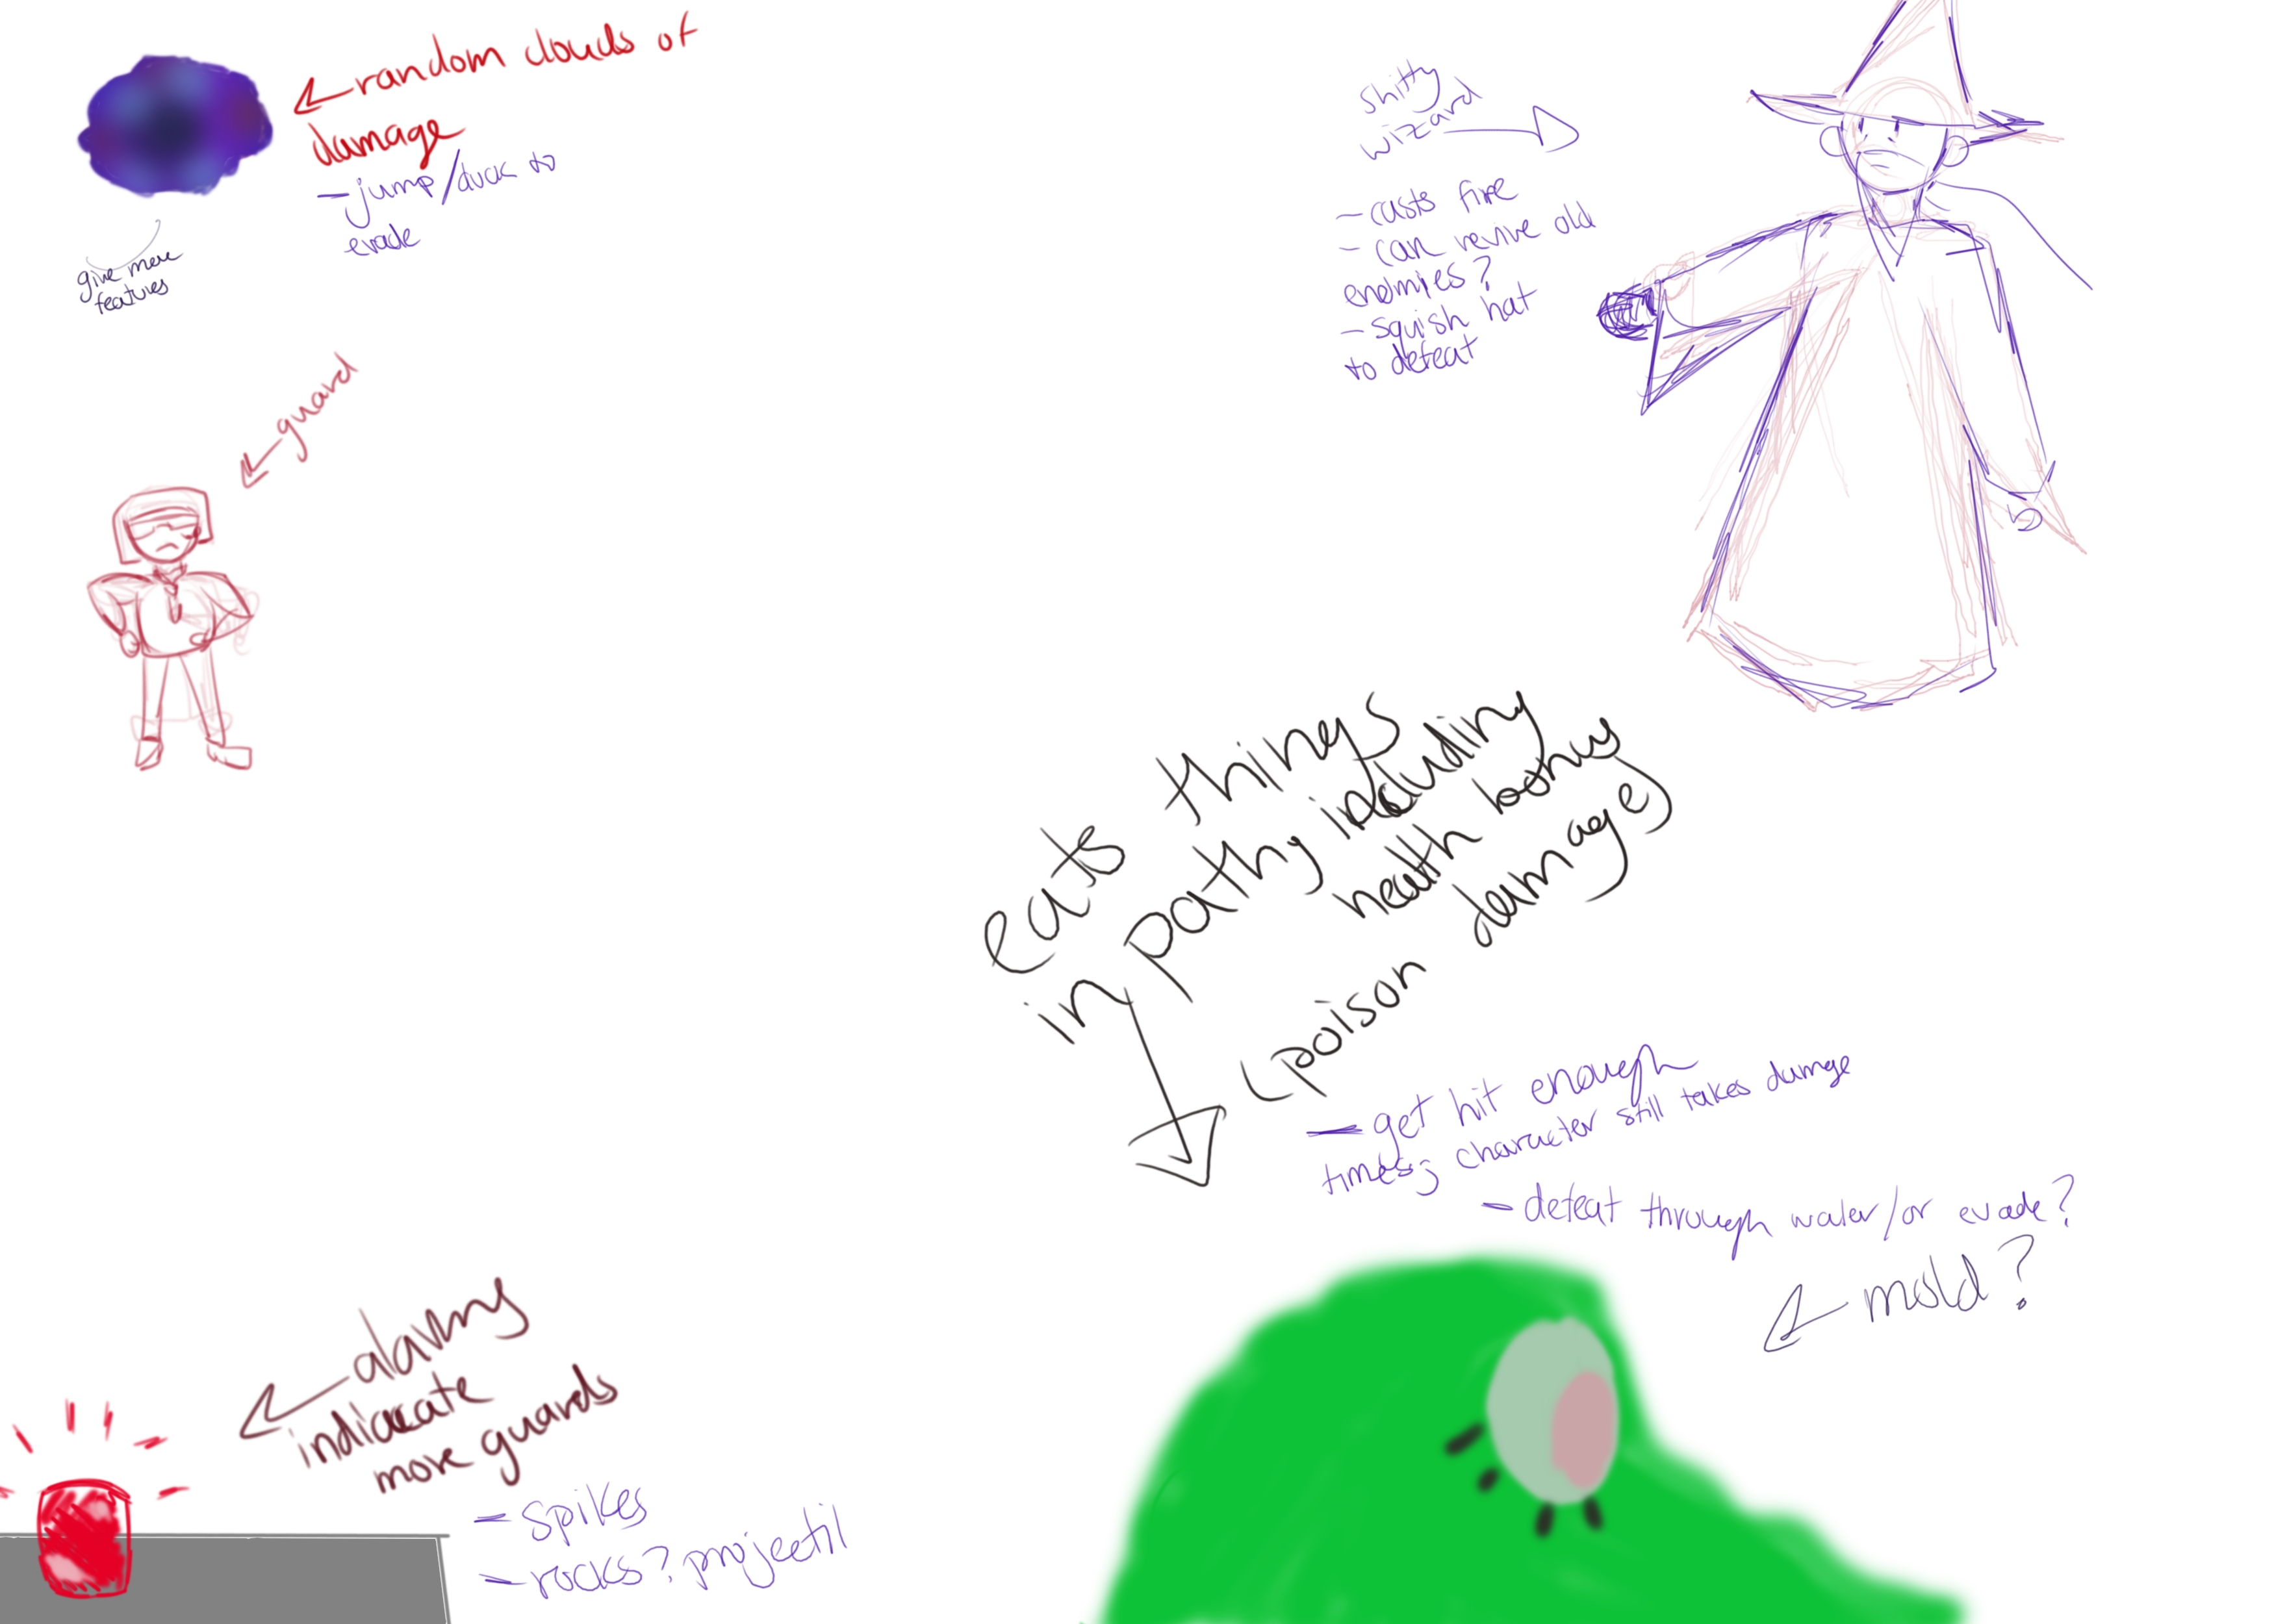 random clouds of
damage
- jump/duck to
evade
give more
features
shitty
wizard
- casts fire
- can revive old
enemies?
- squish hat
to defeat
guard
eats things
in pathy including
health bonus
(poison damage)
- get hit enough
times; character still takes damge
- defeat through water/or evade?
mold?
alarms
indicate
more guards
- spikes
- rocks? projectil